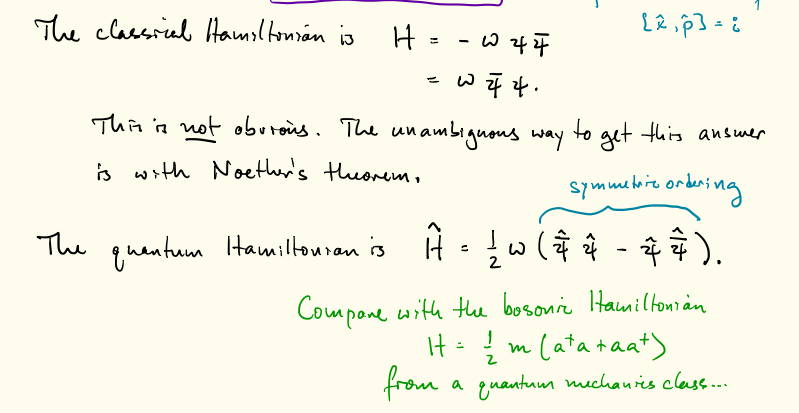 {x̂, p̂} = i
The classical Hamiltonian is H = - ω ψ ψ̄
= ω ψ̄ ψ.
This is not obvious. The unambiguous way to get this answer
is with Noether's theorem.
symmetric ordering
The quantum Hamiltonian is Ĥ = 1/2 ω ( ψ̄̂ ψ̂ - ψ̂ ψ̄̂ ).
Compare with the bosonic Hamiltonian
H = 1/2 m (a†a + aa†)
from a quantum mechanics class...